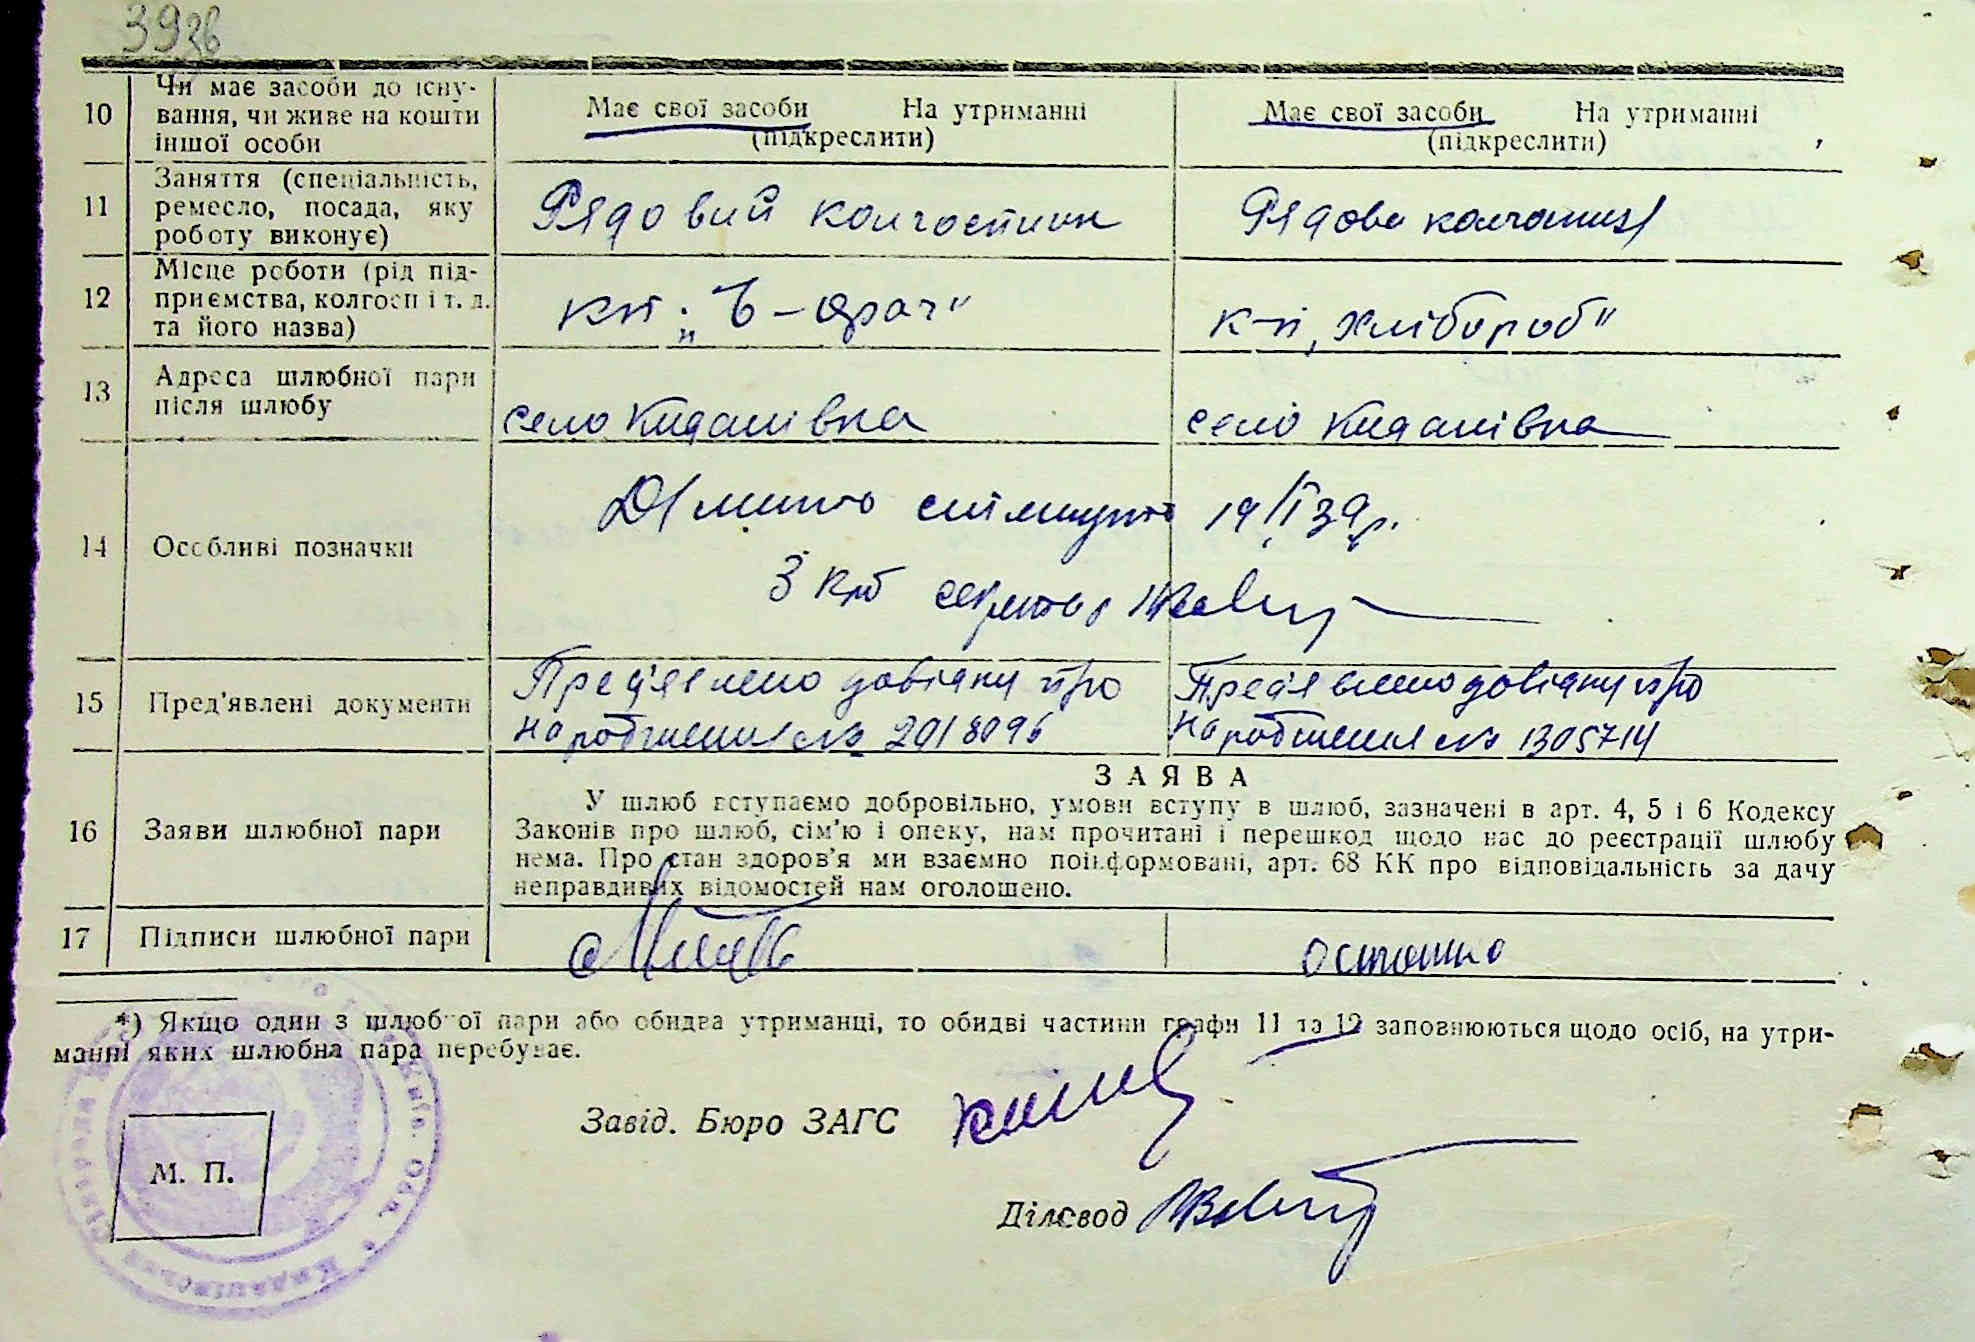 39зв
10 Чи має засоби до існу-
вання, чи живе на кошти
іншої особи
Має свої засоби На утриманні
(підкреслити)
Має свої засоби На утриманні
(підкреслити)
11 Заняття (спеціальність,
ремесло, посада, яку
роботу виконує)
Рядовий колгоспник
Рядова
12 Місце роботи (рід під-
приємства, колгосп і т. д.
та його назва)
к-п „Хлібороб"
13 Адреса шлюбної пари
після шлюбу
село Киданівка
село Киданівка
14 Особливі позначки
19/II 39р.
секретар
15 Пред'явлені документи
Пред'явлено довідку про
народження № 2018096
Пред'явлено довідку про
народження № 1305714
16 Заяви шлюбної пари
ЗАЯВА
У шлюб вступаємо добровільно, умови вступу в шлюб, зазначені в арт. 4, 5 і 6 Кодексу
Законів про шлюб, сім'ю і опеку, нам прочитані і перешкод щодо нас до реєстрації шлюбу
нема. Про стан здоров'я ми взаємно поінформовані, арт. 68 КК про відповідальність за дачу
неправдивих відомостей нам оголошено.
17 Підписи шлюбної пари
*) Якщо один з шлюбної пари або обидва утриманці, то обидві частини графи 11 та 12 заповнюються щодо осіб, на утри-
манні яких шлюбна пара перебуває.
Завід. Бюро ЗАГС
М. П.
Діловод